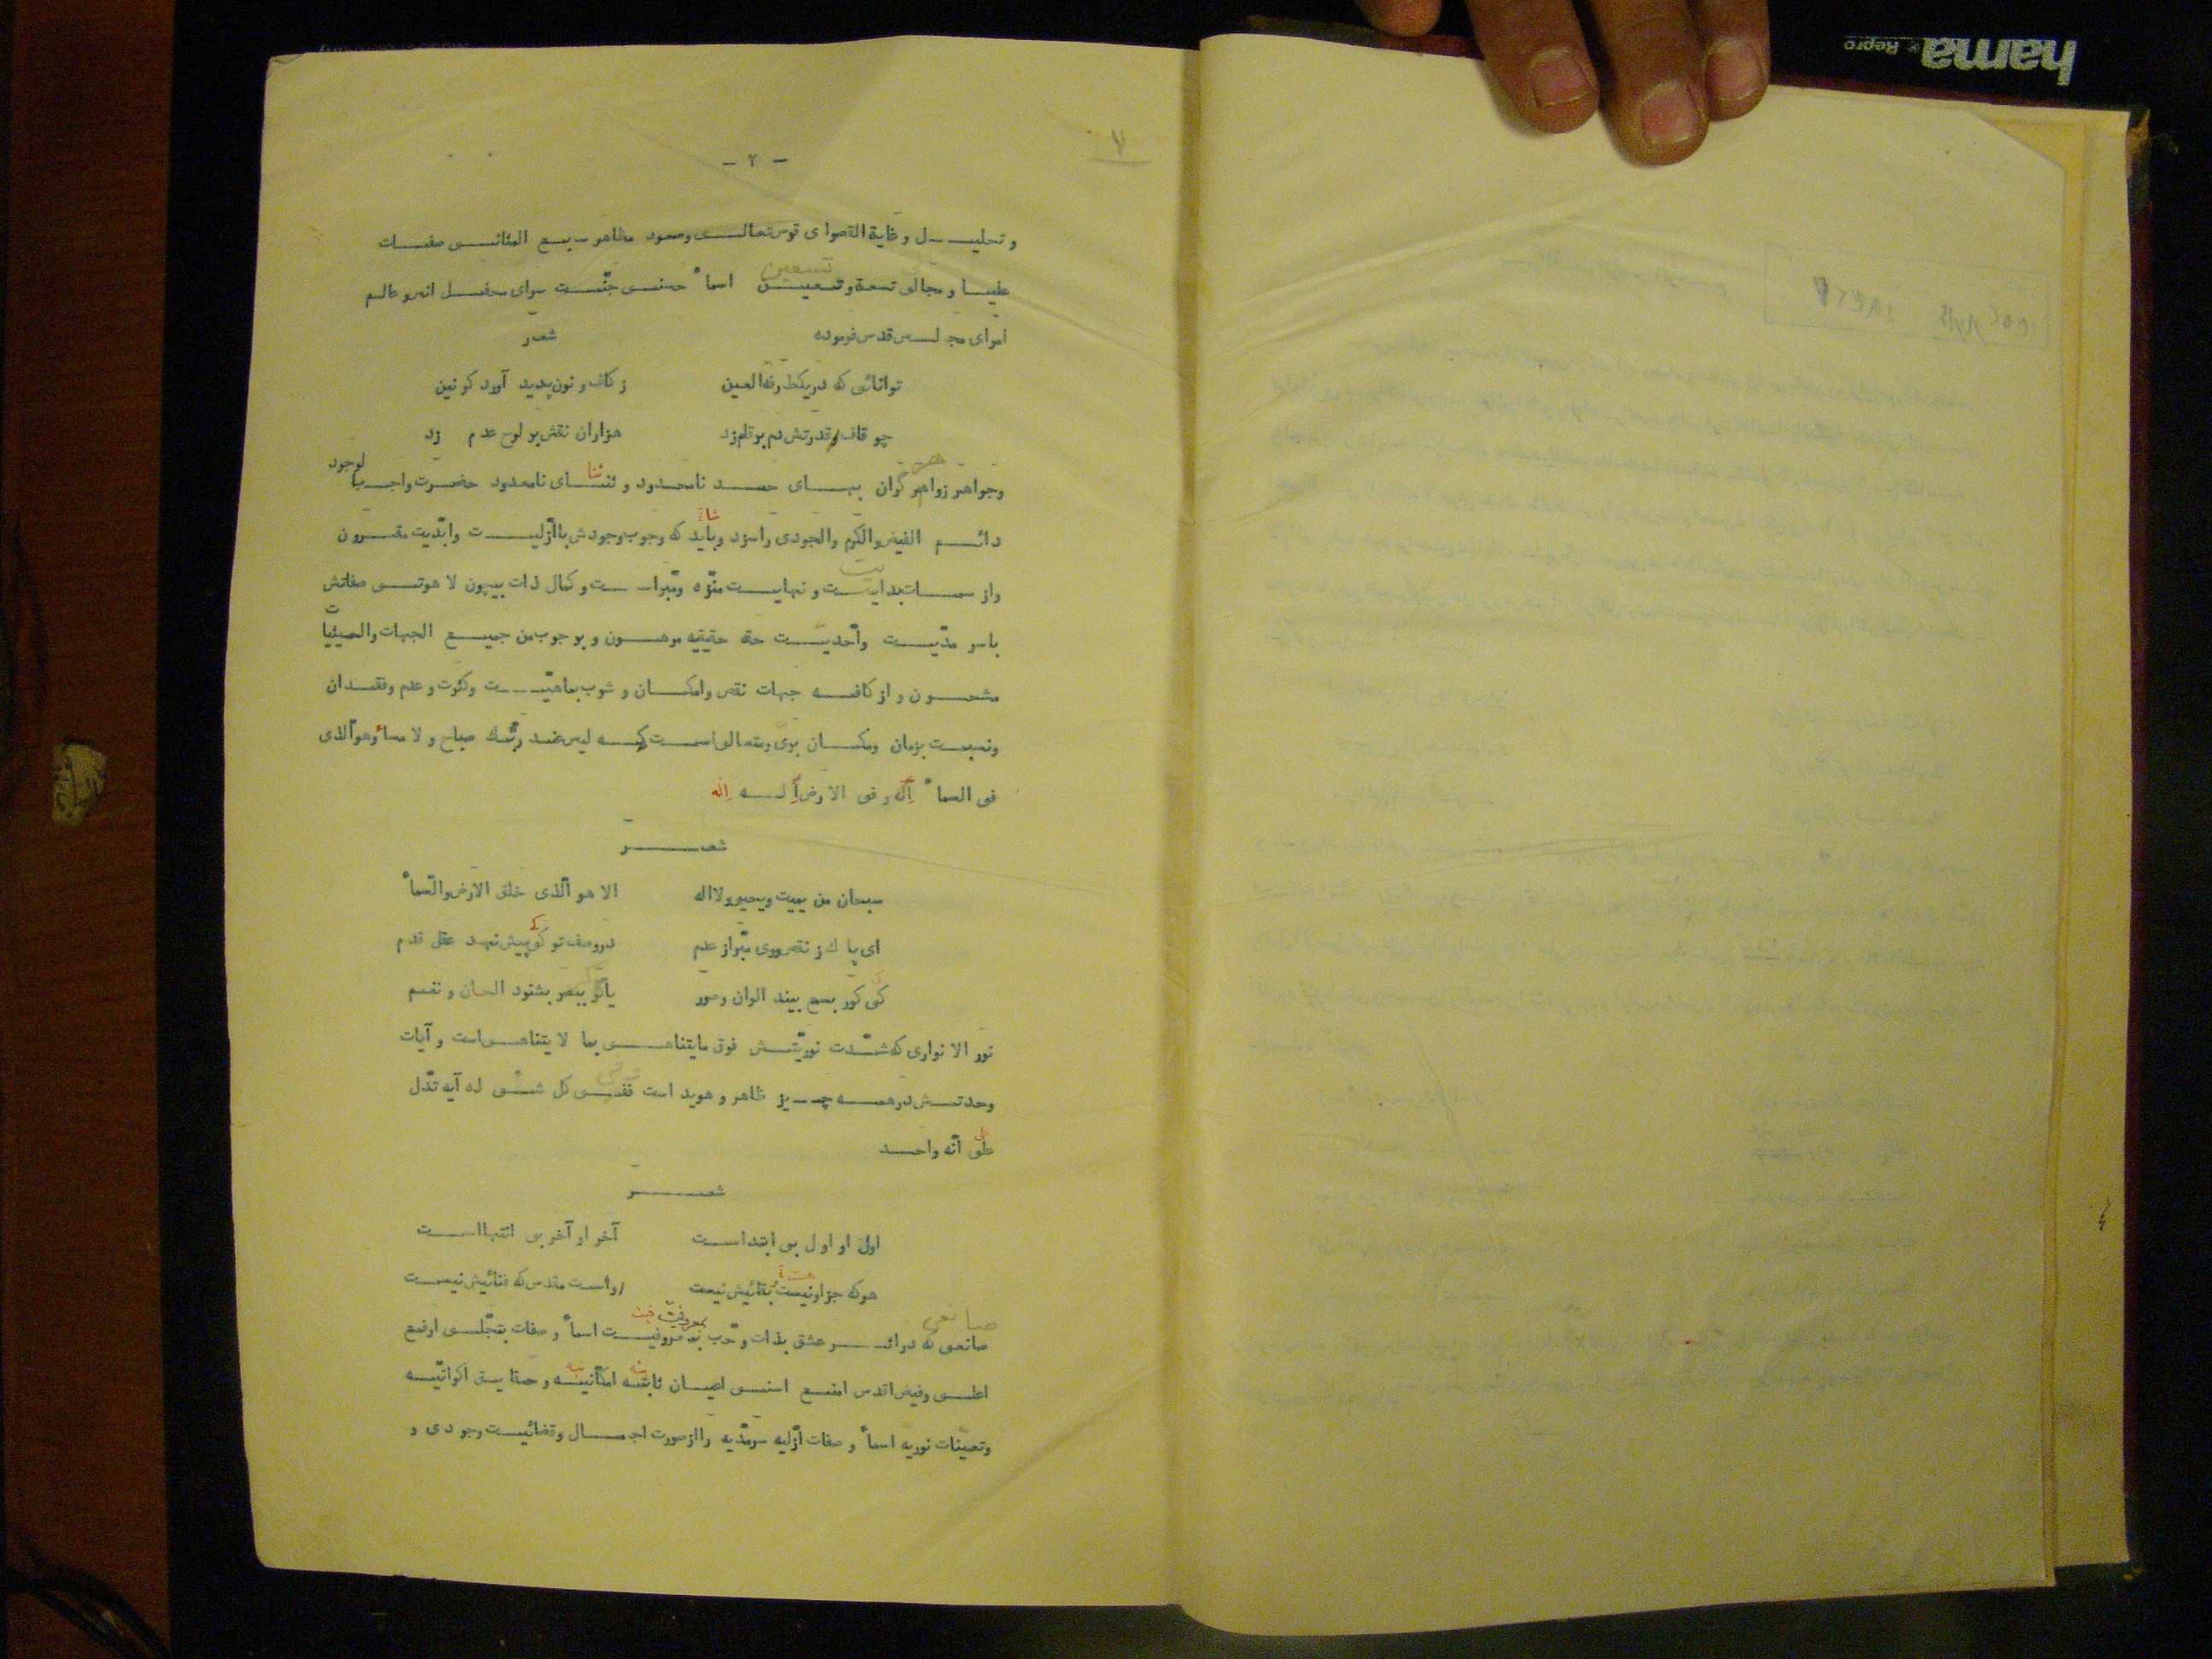 - ۲ -
و تحلیل و غایة القصوای قوس تعالی وصعود مظاهر سبع المثانی صفات
علیا و مجالی تسعة و تسعین اسمأ حسنی جنّت سرای محفل انس و عالم
تسعین
امرای مجلس قدس فرموده شعر
توانائی که دریکطرفه العین زکاف و نون پدید آورد کونین
چو قاف قدرتش دم بر قلم زد هزاران نقش بر لوح عدم زد
وجواهر زواهر گران بهای حمد نامحدود و ثنای نامعدود حضرت واجب الوجود
ثنا
دائم الفیض والکرم والجودی راسزد وباید که وجوب وجودش باازلیت وابدّیت مقرون
واز سمات بدایت و نهایت منزّه ومبّراست و کمال ذات بیچون لاهوتی صفاتش
باسرمدّیت وأحدیّت حقه حقیقیه مرهون و بوجوب من جمیع الجهات والحیثیات
مشحون و از کافه جهات نقص وامکان و شوب بماهیّت وکثرت و عدم وفقدان
ونسبت بزمان ومکان بری ومتعالی است که لیس عند ربّک صباح و لا مسأ وهوالّذی
فی السمأ اِله و فی الارض اِله اِله
شعر
سبحان من یمیت ویحیو ولااله الا هو الّذی خلق الارض والسّمأ
ای پاک ز نقص وری مبّراز عدم دروصف تو کی پیش نهد عقل قدم
کی کور بسمع بیند الوان وصور یاکر ببصر بشنود الحان و نغم
نور الا نواری که شدّت نوریّتش فوق مایتناهی بما لا یتناهی است و آیات
وحدتش درهمه چیز ظاهر و هوید است ففی کل شئی له آیه تدّل
علی انّه واحد
شعر
اول او اول بی ابتداست آخر او آخر بی انتهااست
هرکه جزاونیست بقائیش نیست اواست مقدس که فنائیش نیست
صانعی
صانعی که دراثر عشق بذات و حّب بمعروفیت اسمأ و صفات بتجّلی ارفع
معروفیت
اعلی وفیض اقدس امنع اسنی اعیان ثابته امکانیه و حقایق اکوانیّه
وتعیّنات نوریه اسمأ و صفات ازلیه سرمدّیه راازصورت اجمال وقضائیت وجودی و
hama
Repro